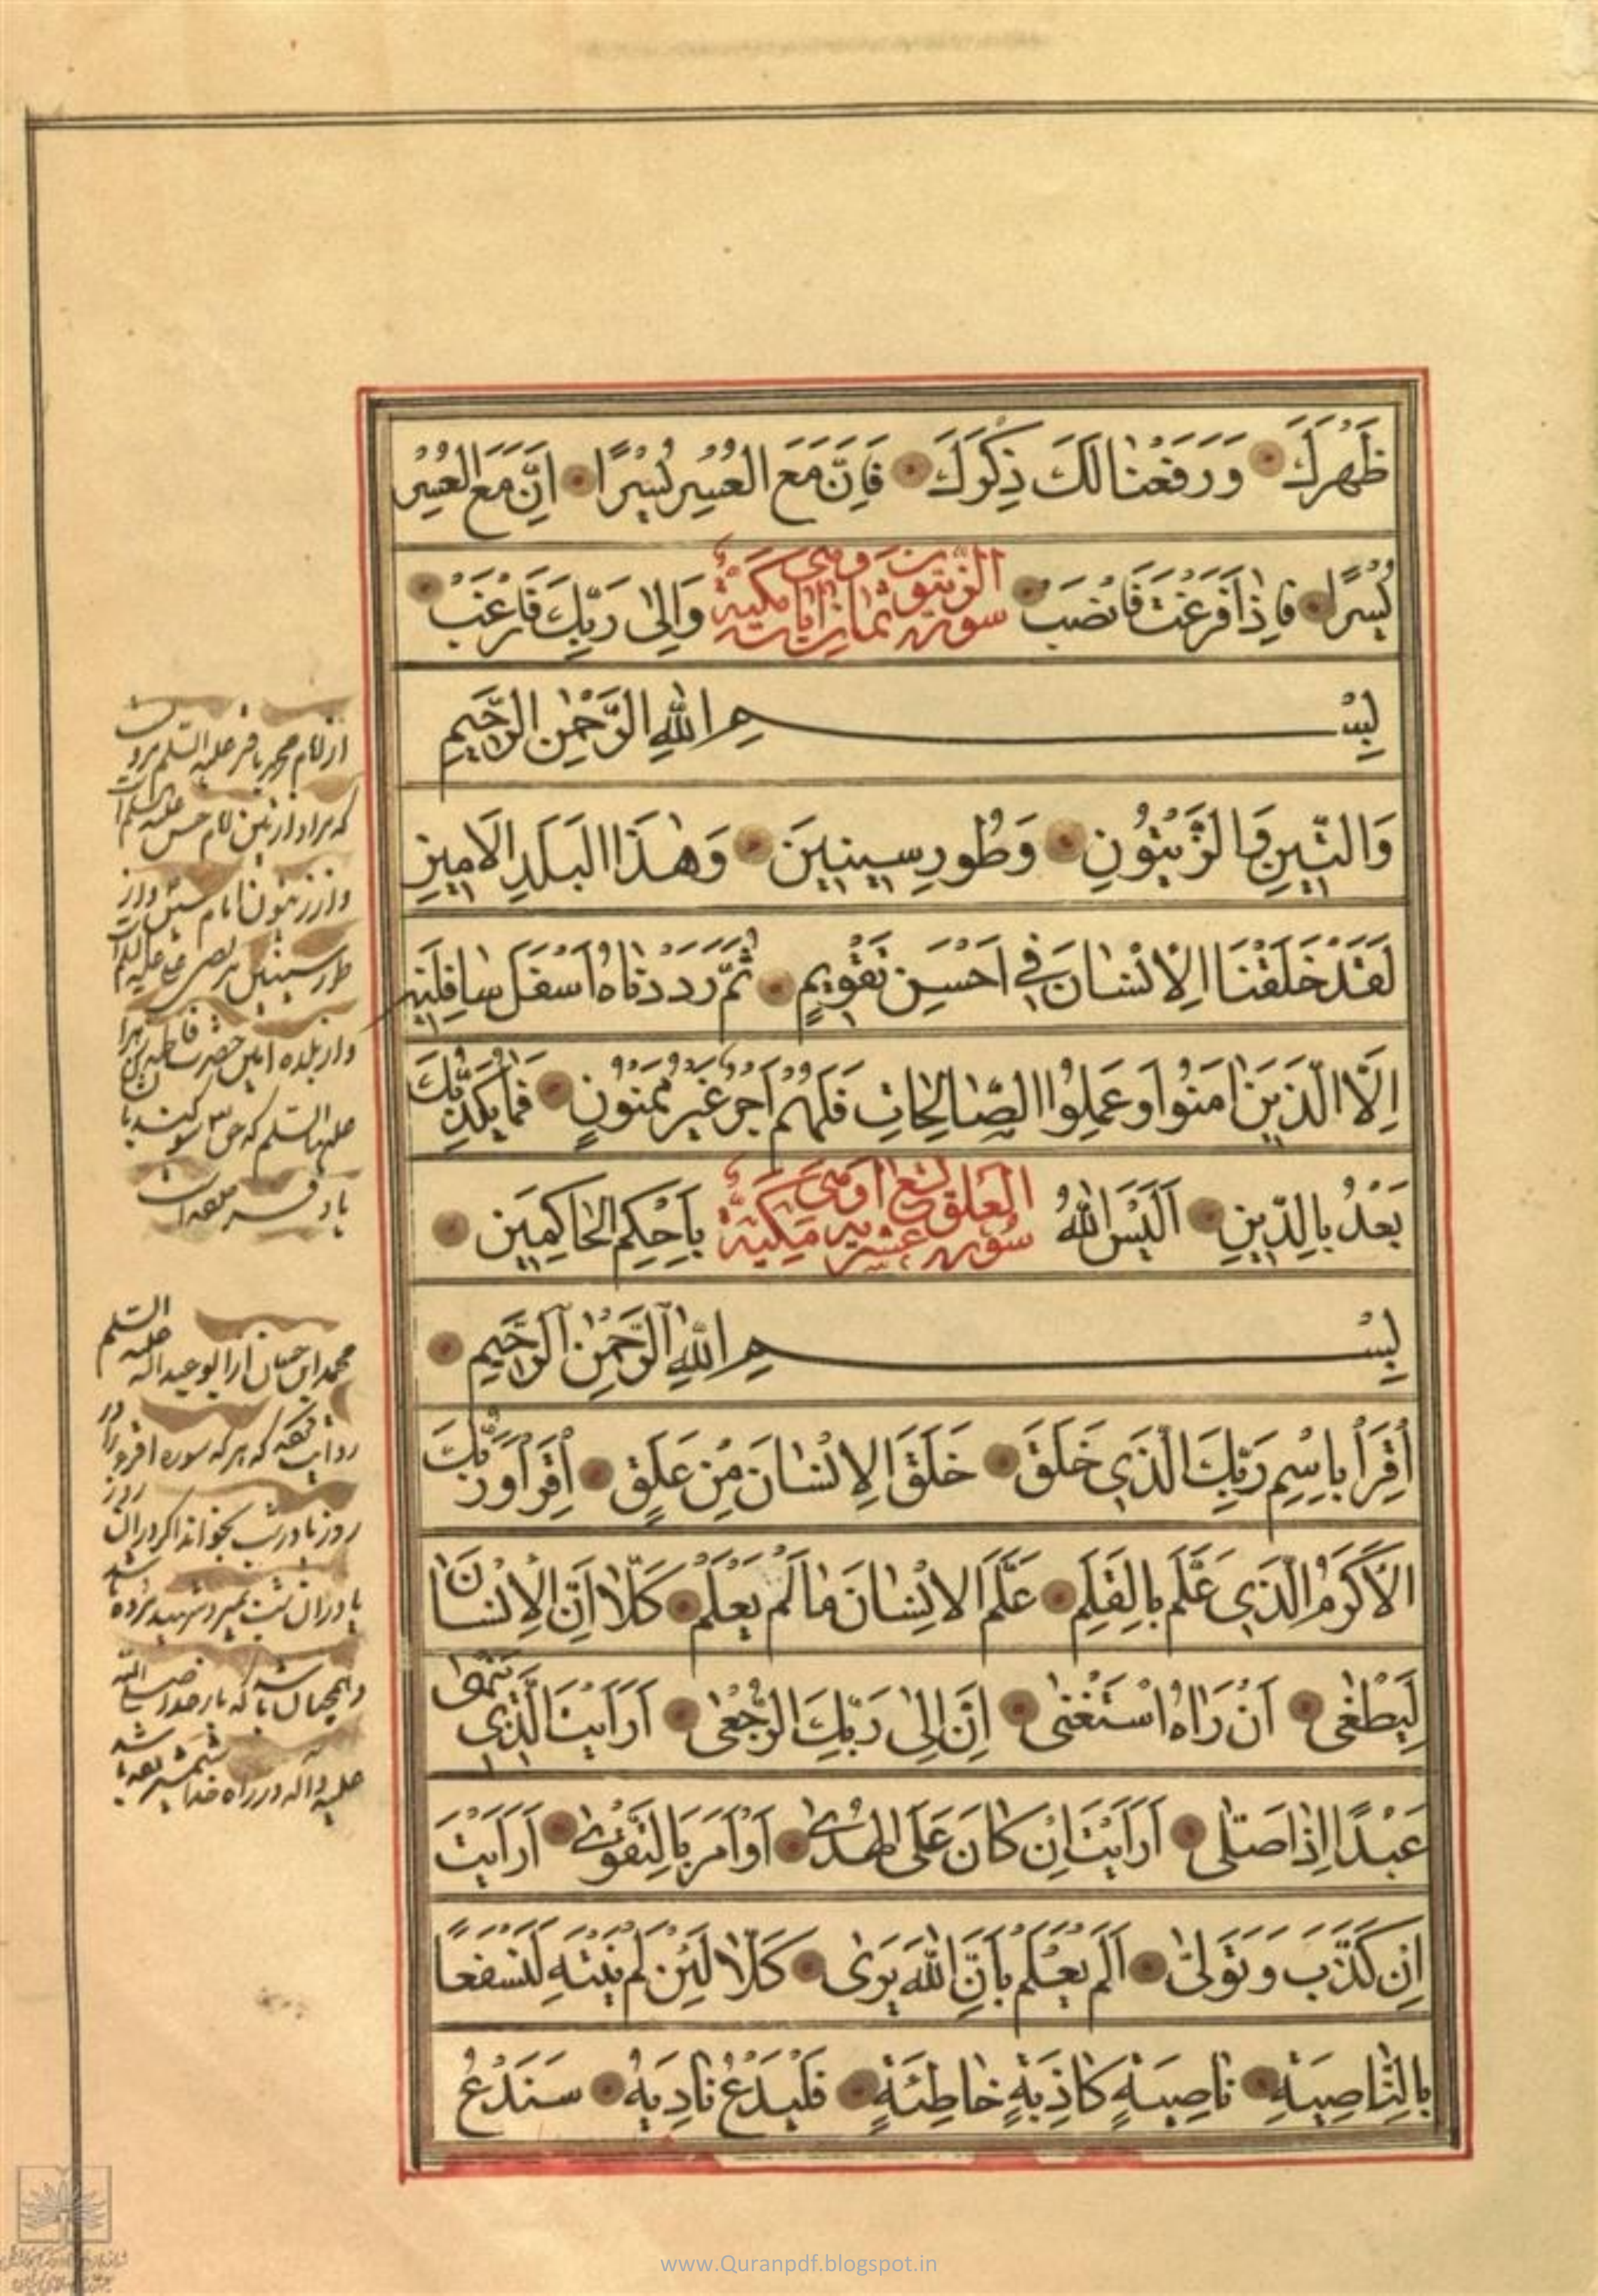 ظَهْرَكَ وَرَفَعْنَا لَكَ ذِكْرَكَ فَاِنَّ مَعَ الْعُسْرِ يُسْرًا اِنَّ مَعَ الْعُسْرِ
يُسْرًا فَاِذَا فَرَغْتَ فَانْصَبْ وَاِلىٰ رَبِّكَ فَارْغَبْ
سورة الزيتون ثمان ايات مكية
بِسْمِ اللّٰهِ الرَّحْمٰنِ الرَّحيمِ
وَالتّينِ وَالزَّيْتُونِ وَطُورِ سينينَ وَهٰذَا الْبَلَدِ الْاَمينِ
لَقَدْ خَلَقْنَا الْاِنْسَانَ في اَحْسَنِ تَقْويمٍ ثُمَّ رَدَدْنَاهُ اَسْفَلَ سَافِلينَ
اِلَّا الَّذينَ اٰمَنُوا وَعَمِلُوا الصَّالِحَاتِ فَلَهُمْ اَجْرٌ غَيْرُ مَمْنُونٍ فَمَا يُكَذِّبُكَ
بَعْدُ بِالدّينِ اَلَيْسَ اللّٰهُ بِاَحْكَمِ الْحَاكِمينَ
سورة العلق تسع عشر اية مكية
بِسْمِ اللّٰهِ الرَّحْمٰنِ الرَّحيمِ
اِقْرَأْ بِاسْمِ رَبِّكَ الَّذي خَلَقَ خَلَقَ الْاِنْسَانَ مِنْ عَلَقٍ اِقْرَأْ وَرَبُّكَ
الْاَكْرَمُ الَّذي عَلَّمَ بِالْقَلَمِ عَلَّمَ الْاِنْسَانَ مَا لَمْ يَعْلَمْ كَلَّا اِنَّ الْاِنْسَانَ
لَيَطْغىٰ اَنْ رَاٰهُ اسْتَغْنىٰ اِنَّ اِلىٰ رَبِّكَ الرُّجْعىٰ اَرَاَيْتَ الَّذي يَنْهىٰ
عَبْدًا اِذَا صَلّىٰ اَرَاَيْتَ اِنْ كَانَ عَلَى الْهُدىٰ اَوْ اَمَرَ بِالتَّقْوىٰ اَرَاَيْتَ
اِنْ كَذَّبَ وَتَوَلّىٰ اَلَمْ يَعْلَمْ بِاَنَّ اللّٰهَ يَرىٰ كَلَّا لَئِنْ لَمْ يَنْتَهِ لَنَسْفَعًا
بِالنَّاصِيَةِ نَاصِيَةٍ كَاذِبَةٍ خَاطِئَةٍ فَلْيَدْعُ نَادِيَهُ سَنَدْعُ
از امام محمد باقر علیه السلم
که مراد از تین امام حسن علیه السلم
و از زیتون امام حسین و از
طور سینین علی علیه السلم
و از بلده امین حضرت فاطمه زهرا
علیها السلم که حق سوگند با
یاد
محمد ابن حسان از ابو عبدالله علیه السلم
روایت که هر که سوره اقرا در
روز یا در شب بخواند اگر در آن روز
یا در آن شب بمیرد شهید مرده باشد
و همچنان باشد که با رسول خدا صلی الله
علیه و آله در راه خدا شمشیر
www.Quranpdf.blogspot.in